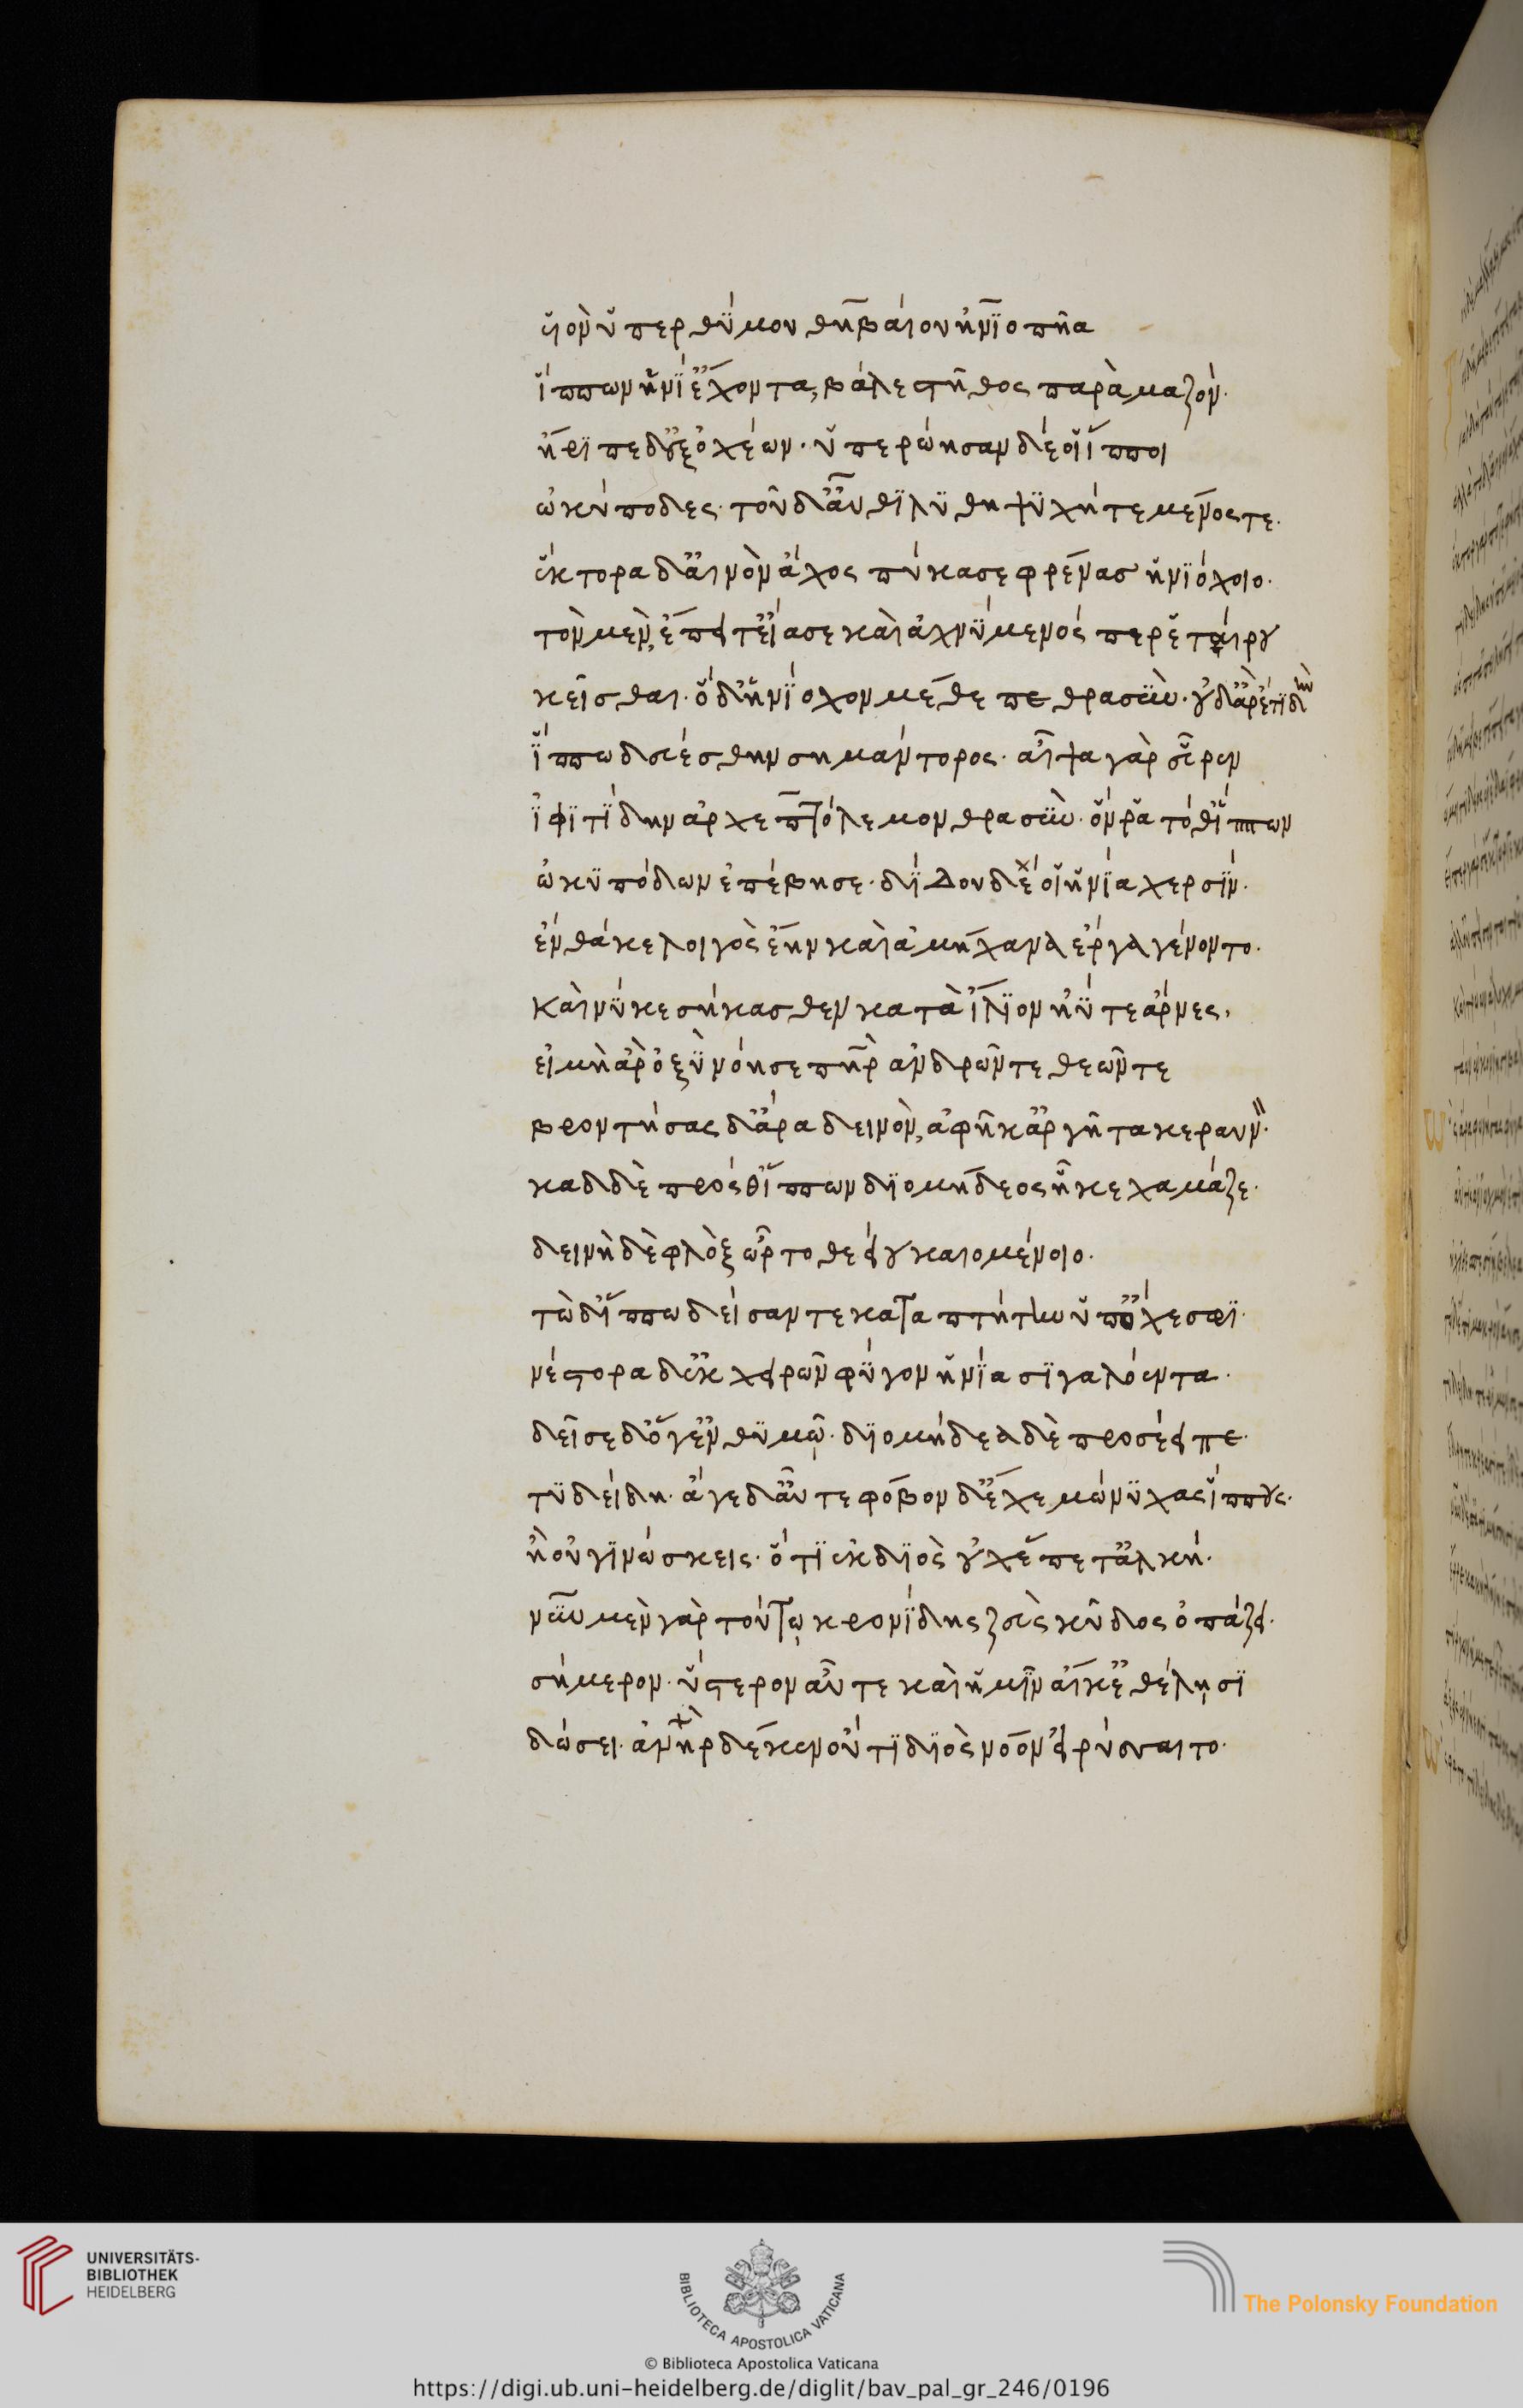 υἱὸν ὑπερθύμου θηβαίου ἡνϊοπῆα
ἵππων ἡνί' ἔχοντα, βάλε στῆθος παρὰ μαζόν.
ἤριπε δ' ἐξ ὀχέων. ὑπερώησαν δέ οἱ ἵπποι
ὠκύποδες. τοῦ δ' αὖθϊ λύθη ψυχή τε μένος τε.
ἕκτορα δ' αἰνὸν ἄχος πύκασε φρένας ἡνϊόχοιο.
τὸν μὲν, ἔπειτ' εἴασε καὶ ἀχνύμενός περ ἑταίρου
κεῖσθαι. ὁ δ' ἡνίοχον μέθεπε θρασύν. οὐδ' ἄρ' ἔτι δὴν
ἵππω δευέσθην σημάντορος. αἶψα γὰρ εὗρεν
ἰφιτίδην ἀρχεπτόλεμον θρασύν. ὅν ῥα τόθ' ἵππων
ὠκυπόδων ἐπέβησε. δίδου δέ οἱ ἡνία χερσίν.
ἔνθά κε λοιγὸς ἔην καὶ ἀμήχανα ἔργα γένοντο.
καί νύ κε σήκασθεν κατὰ ἴλιον ἠΰτε ἄρνες,
εἰ μὴ ἄρ' ὀξὺ νόησε πατὴρ ἀνδρῶν τε θεῶν τε
βροντήσας δ' ἄρα δεινὸν, ἀφῆκ' ἀργῆτα κεραυνόν.
καδδὲ πρόσθ' ἵππων διομήδεος ἧκε χαμάζε.
δεινὴ δὲ φλὸξ ὦρτο θεείου καιομένοιο.
τὼ δ' ἵππω δείσαντε καταπτήτην ὑπ' ὄχεσφι.
νέστορα δ' ἐκ χειρῶν φύγον ἡνία σιγαλόεντα.
δεῖσε δ' ὅγ' ἐν θυμῷ. διομήδεα δὲ προσέειπε.
τυδείδη. ἄγε δ' αὖτε φόβον δ' ἔχε μώνυχας ἵππους.
ἢ οὐ γινώσκεις. ὅ τι ἐκ διὸς οὐχ ἕπετ' ἀλκή.
νῦν μὲν γὰρ τούτῳ κρονίδης ζεὺς κῦδος ὀπάζει.
σήμερον. ὕστερον αὖτε καὶ ἡμῖν αἴ κ' ἐθέλῃσϊ
δώσει. ἀνὴρ δέ κεν οὔ τι διὸς νόον εἰρύσσαιτο.
UNIVERSITÄTS-
BIBLIOTHEK
HEIDELBERG
BIBLIOTECA APOSTOLICA VATICANA
The Polonsky Foundation
© Biblioteca Apostolica Vaticana
https://digi.ub.uni-heidelberg.de/diglit/bav_pal_gr_246/0196